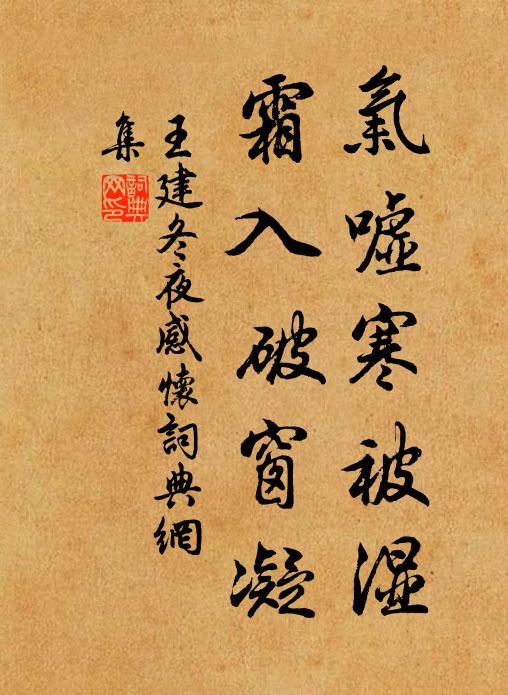 氣嘘寒被湿
霜入破窗凝
王建冬夜感懷詞典網
集
詞典
网印